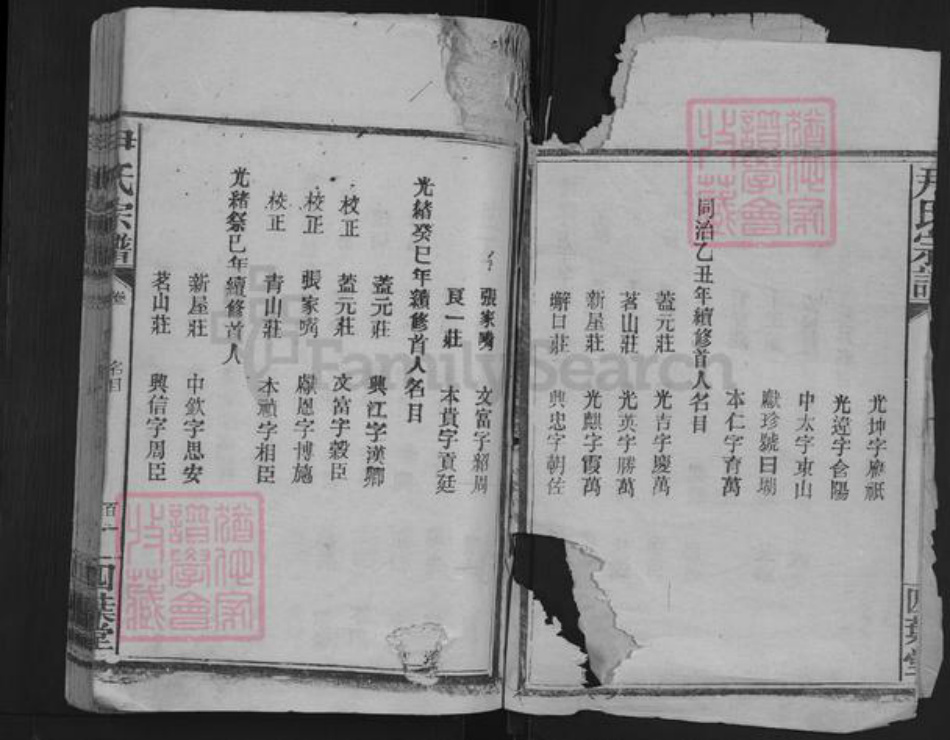 尹氏宗譜
四葉堂
光坤字廠祇
光達字會陽
中太字東山
獻珍號曰瑚
本仁字育萬
同治乙丑年續修首人名目
蓋元莊 光吉字慶萬
茗山莊 光英字勝萬
新屋莊 光麒字霞萬
獬日莊 興忠字朝佐
張家嘴 文富字紹周
良一莊 本貴字貢廷
光緒癸巳年續修首人名目
蓋元莊 興江字漢卿
校正 蓋元莊 文富字毅臣
校正 張家嘴 獻恩字博施
校正 青山莊 本禎字相臣
光緒癸巳年續修首人
新屋莊 中欽字思安
茗山莊 興信字周臣
尹氏宗譜
卷
名目
四葉堂
猶他家譜學會收藏
猶他家譜學會收藏
FamilySearch